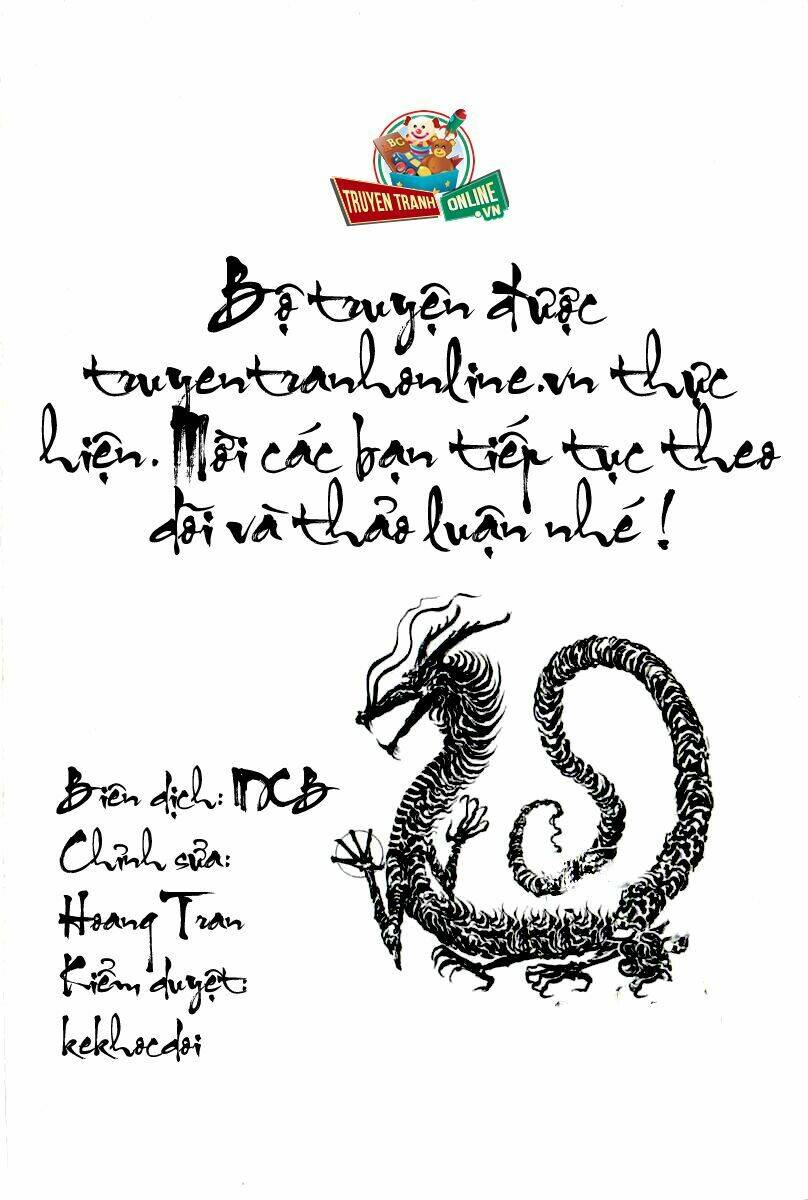 ABC
TRUYEN TRANH ONLINE
.VN
Bộ truyện được
truyentranhonline.vn thực
hiện. Mời các bạn tiếp tục theo
dõi và thảo luận nhé!
Biên dịch: MCB
Chỉnh sửa:
Hoang Tran
Kiểm duyệt:
kekhocdoi